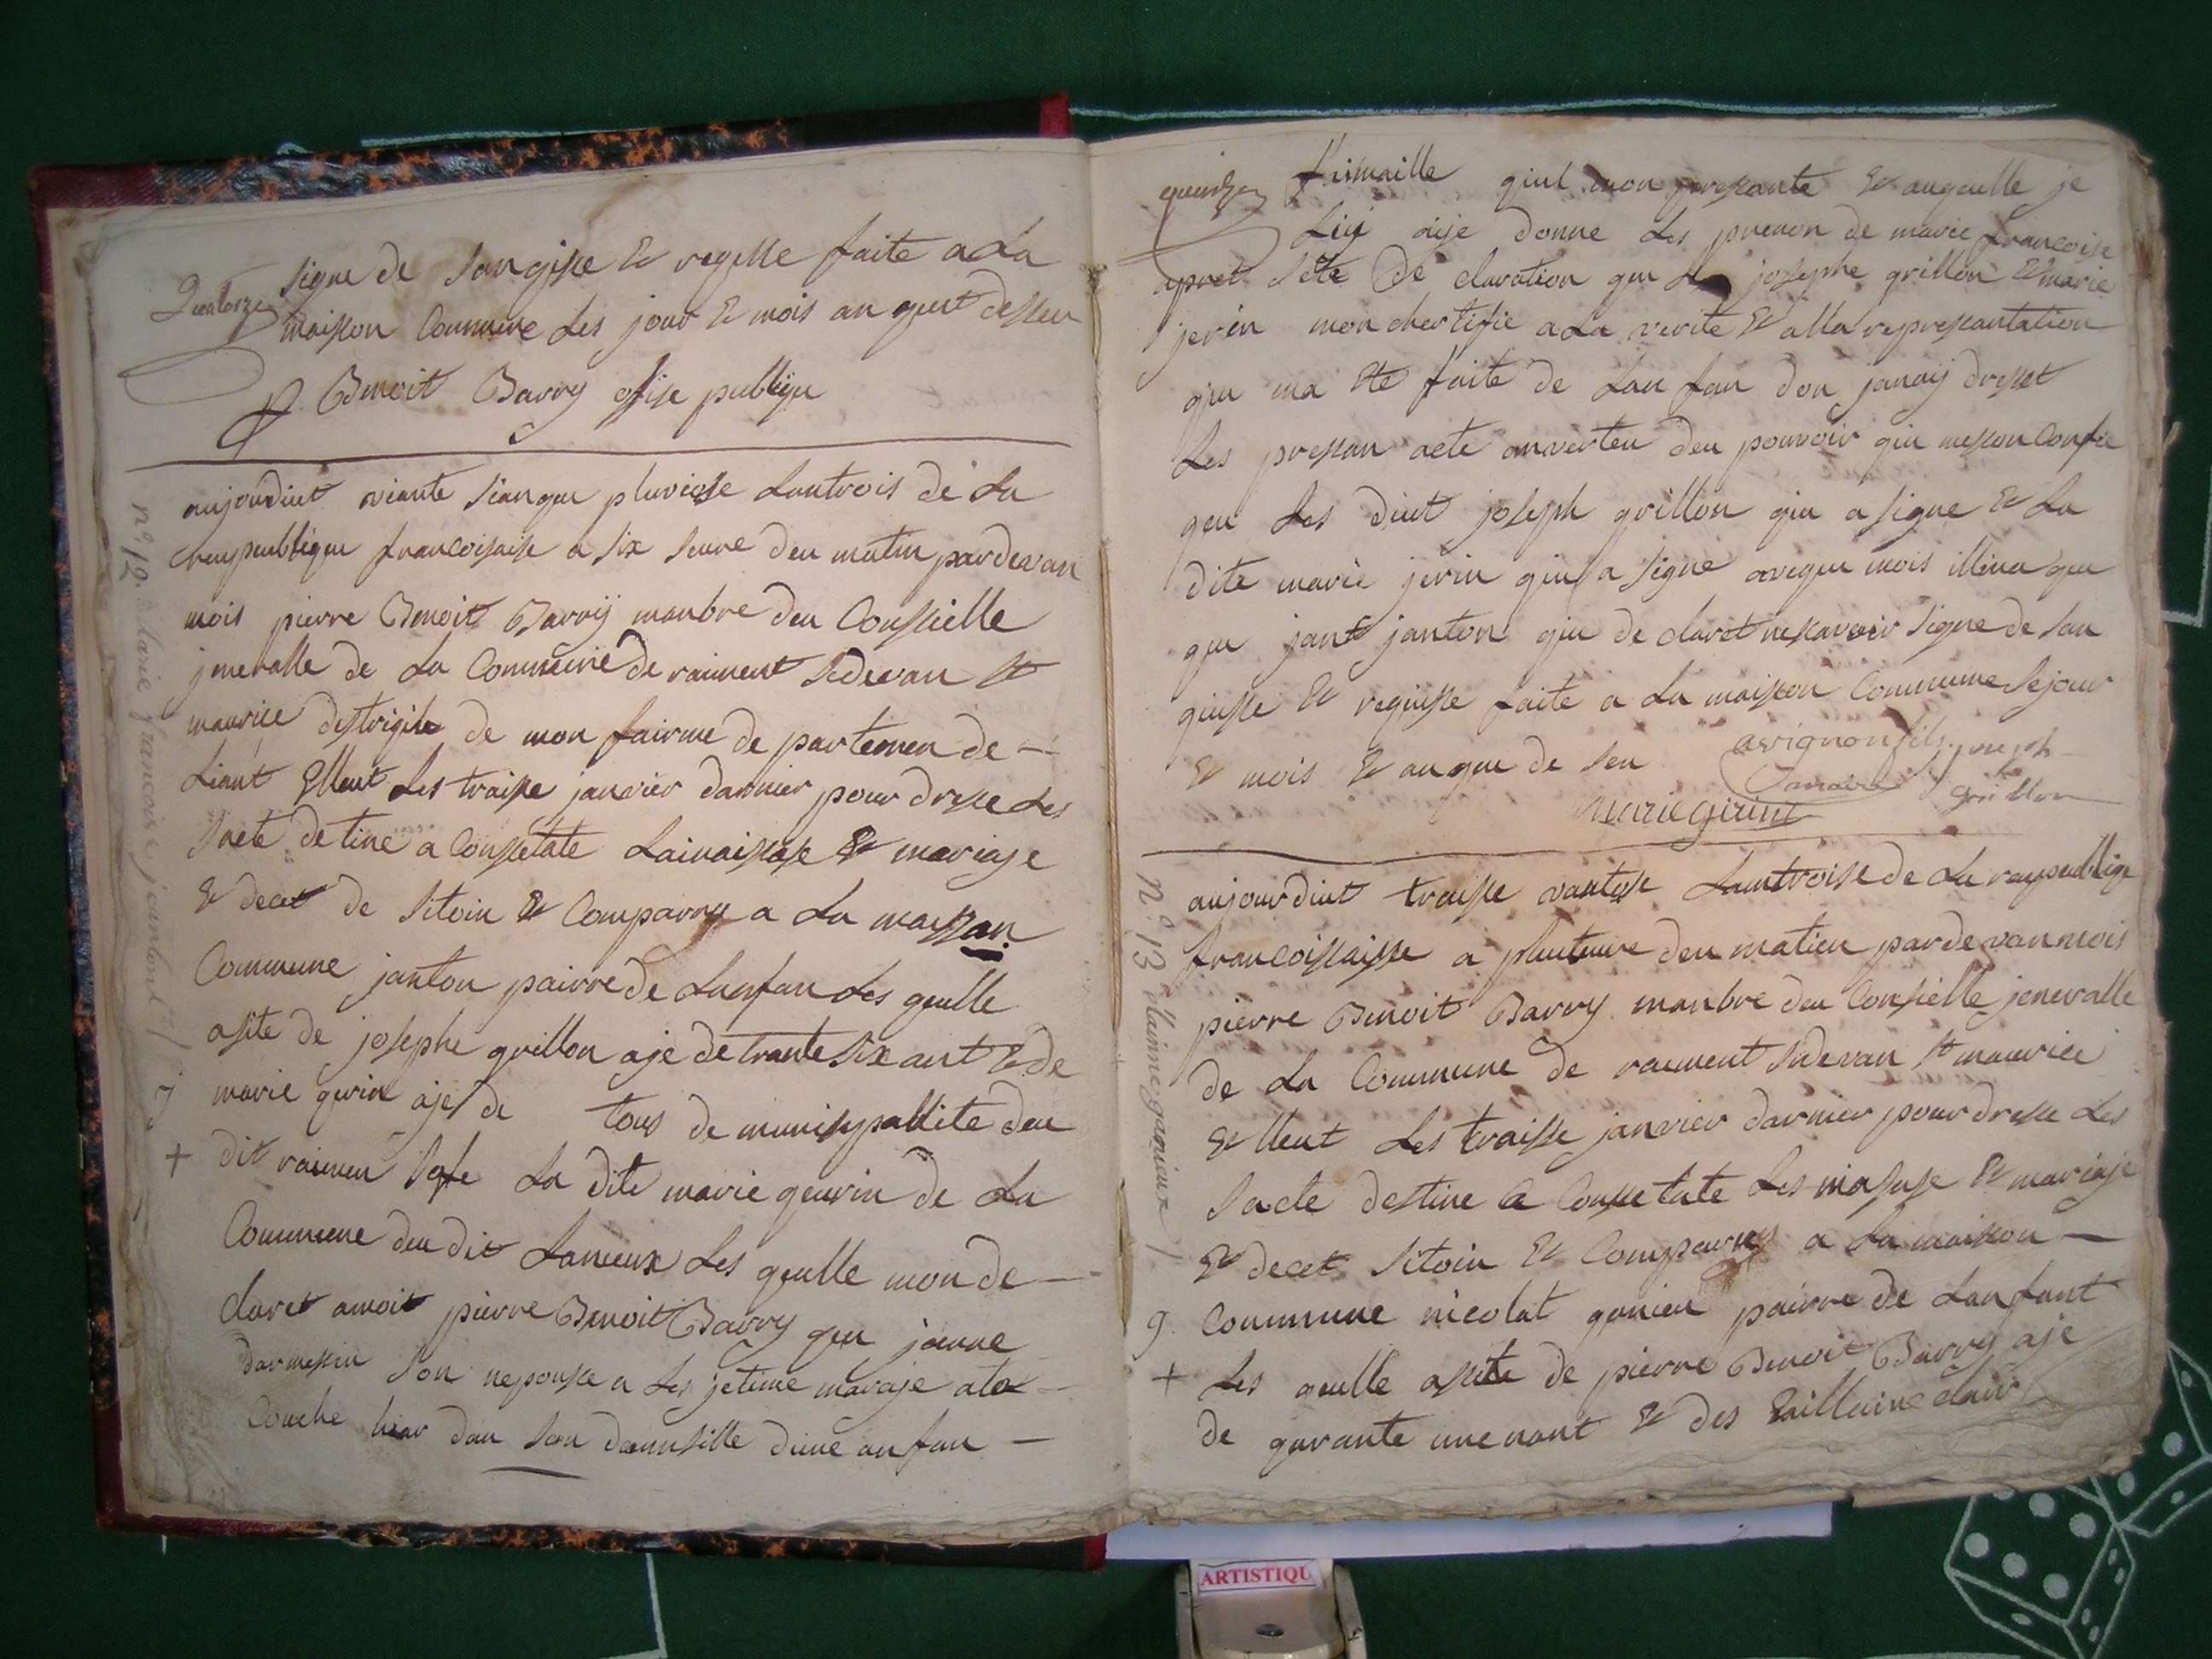 Quatorze
signe de san gise & regisse faite a La
maison Commune Les jour & mois an queut desseu
P. Benoit Barry ofise publiqu
n.° 12. Marie francoise jeantont
aujourdiut viante sianque pluviose Lantrois de La
reupeublique francoisaise a six seure deu matin pardevan
mois pierre Benoit Barrÿ manbre deu Consielle
jneralle de La Commune de raiment sidevan St
maurice destrigile de mon fairme de partemen de
Liant Elleut Les traise janvier darnier pour dresse Les
sacte de tine a Consetate Lainaissase & mariaje
& decet de sitoin & Comparru a La maissan
Commune janton pairre de Lanfan Les quelle
asite de josephe grillon aje de trante six ant & de
marie gerin ajes de tous de munisypallite deu
dit raimen La dite marie geurin de La
Commune deu dit Lanieux Les quelle mon de
claret amoit pierre Benoit Barry que jeanne
darmesin son nepouse a Les jetime maraje ato
Couche hiar dan san damisille dune anfan
queinze
fismaille qiul mon presante & auquelle je
Lüi aije donne Les prenon de marie francoise
apret sete de claration que josephe grillon & marie
jerin mon chertifie a La verite & alla represantation
qiu ma ete faite de Lan fan don janaij dresset
Les presan acte anverteu deu pouvoir qiu meson Confie
qeu Les diut joseph grillon qiu a signe & La
dite marie jerin qiu a signe aveque mois
que jant janton qiu de claret nesavoir signe de san
giusse & regiusse faite a La maison Commune sejour
& mois & an que de seu
avignon fils
maire
joseph
grillon
marie girint
n.° 13
aujourdiut traisse vantose Lantroise de La reupeublige
francoissaisse a deu matien par devan mois
pierre Benoit Barry manbre deu Consielle jeneralle
de La Commune de raiment sidevan St maurice
& lleut Les traisse janvier darnier pour dresse Les
sacte destine a Consetate Les & mariaje
& decet sitoin & Comparru a La maison
9. Commune nicolat ganieu pairre de Lanfant
+ Les quelle asite de pierre Benoit Barry aje
de garante une nant & des
ARTISTIQU